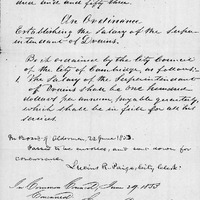 and fifty three.
An Ordinance
Establishing the Salary of the Superin-
tendent of Drains.
Be it ordained by the City Council
of the City of Cambridge, as follows:
The Salary of the Superintendent
of Drains shall be one hundred
dollars per annum, payable quarterly,
which shall be in full for all his
services.
In Board of Aldermen, 22 June 1853.
Passed to be enrolled, and sent down for
concurrence.
Lucius R. Paige, City Clerk.
In Common Council, June 29, 1853
Concurred